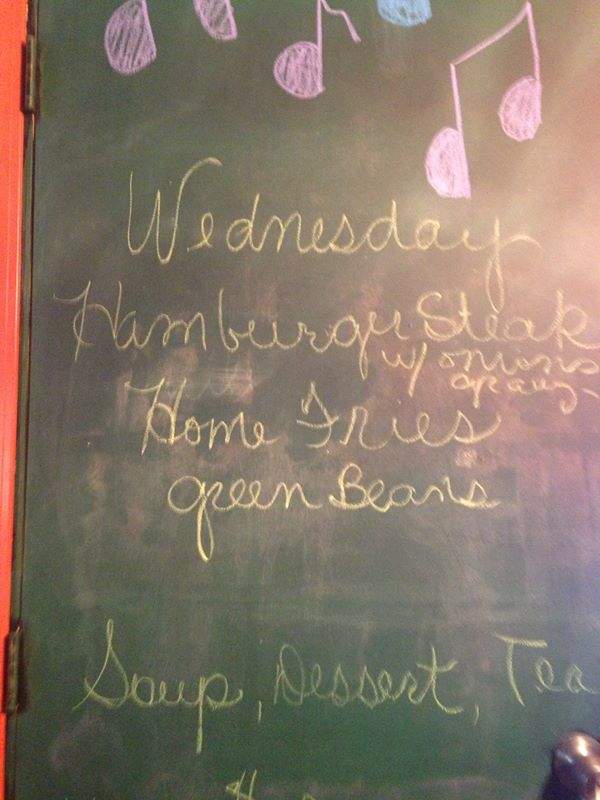 Wednesday
Hamburger Steak
w/ onions
gravy
Home Fries
green Beans
Soup, Dessert, Tea